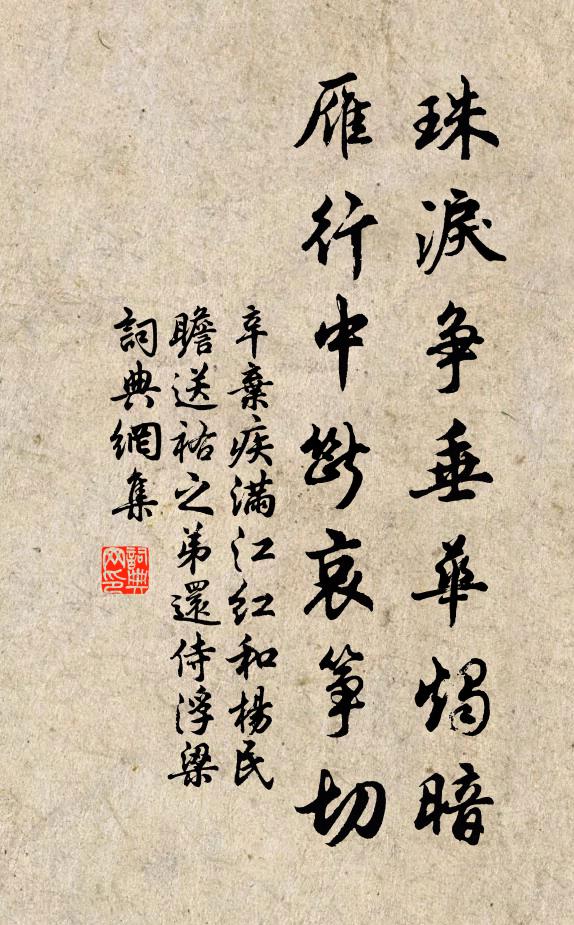 珠淚爭垂華燭暗
雁行中斷哀箏切
辛棄疾滿江紅和楊民
瞻送祐之弟還侍浮梁
詞典網集
詞典
网印